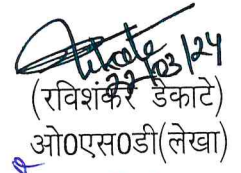 22/03/24
(रविशंकर डेकाटे)
ओ0एस0डी(लेखा)